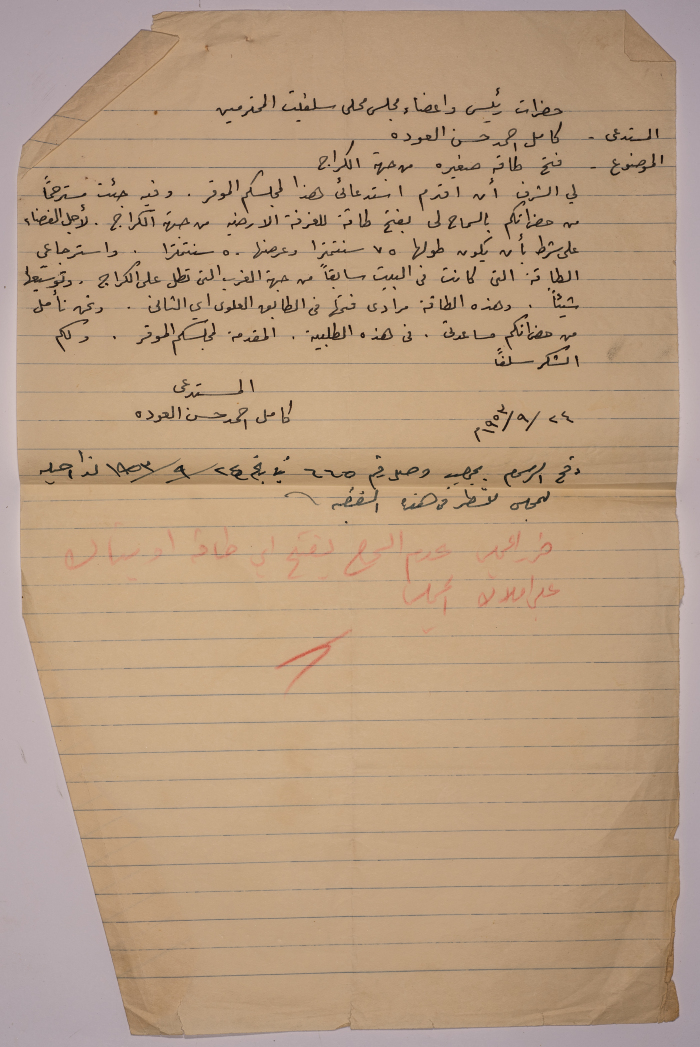 حضرات رئيس واعضاء مجلس محلي سلفيت المحترمين
المستدعي - كامل احمد حسن العوده
الموضوع - فتح طاقه صغيره من جهة الكراج
لي الشرف أن اقدم استدعائي هذا لمجلسكم الموقر . وفيه جئت مسترحماً
من حضراتكم بالسماح لي بفتح طاقة للغرفة الارضيه من جهة الكراج . لأجل الفضاء
على شرط بأن يكون طولها ٧٥ سنتمترا وعرضها ٥٠ سنتمترا . واسترجاعي
الطاقة التي كانت في البيت سابقاً من جهة الغرب التي تطل على الكراج . وتوسيعها
شيئاً . وهذه الطاقة مرادي فتحها في الطابق العلوي اي الثاني . ونحن نأمل
من حضراتكم مساعدتي . في هذه الطلبية . المقدمة لمجلسكم الموقر . ولكم
الشكر سلفاً
المستدعي
كامل احمد حسن العوده
٢٤/٩/١٩٥٣م
دفع الرسوم بموجب وصل رقم ٦٦٥ تاريخ ٢٤/٩/١٩٥٣ لذا احيله
للمجلس للنظر في هذه القضيه
قرر المجلس عدم السماح بفتح اي طاقة او شباك
على املاك المجلس